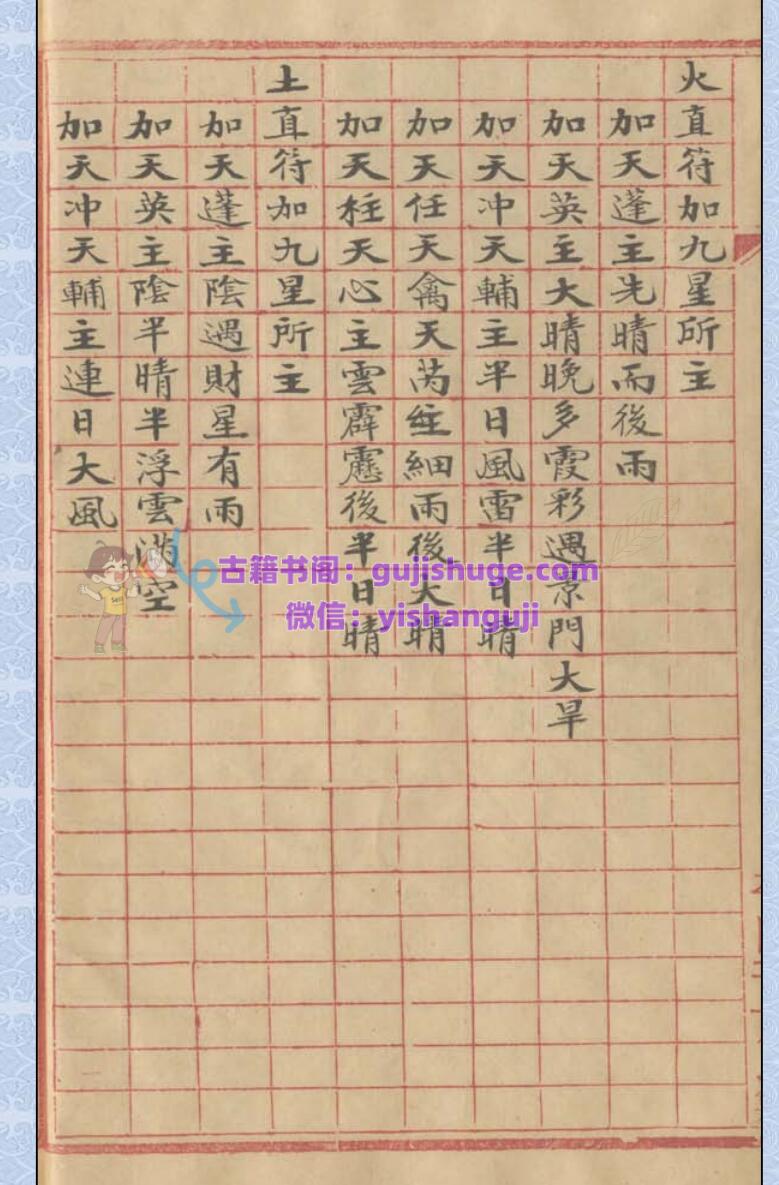 火直符加九星所主
加天蓬主先晴而後雨
加天英主大晴晚多霞彩遇景門大旱
加天冲天輔主半日風雷半日晴
加天任天禽天芮 細雨後大晴
加天柱天心主雲霹靂後半日晴
土直符加九星所主
加天蓬主陰遇財星有雨
加天英主陰半晴半浮雲滿空
加天冲天輔主連日大風
古籍书阁：gujishuge.com
微信：yishanguji